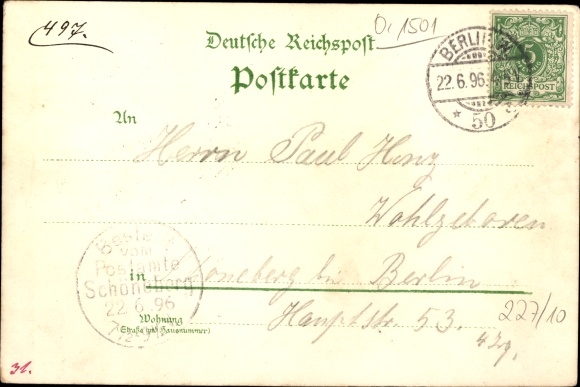 497.
O. 1501
Deutsche Reichspost
Postkarte
BERLIN W
22.6.96.
* 50
5
REICHSPOST
An
Herrn Paul
Wohlgeboren
Bestellt
vom
Postamte
Schöneberg
22 6. 96
in Schöneberg bei Berlin
Wohnung
(Straße und Hausnummer)
Hauptstr. 53.
227/10
31.